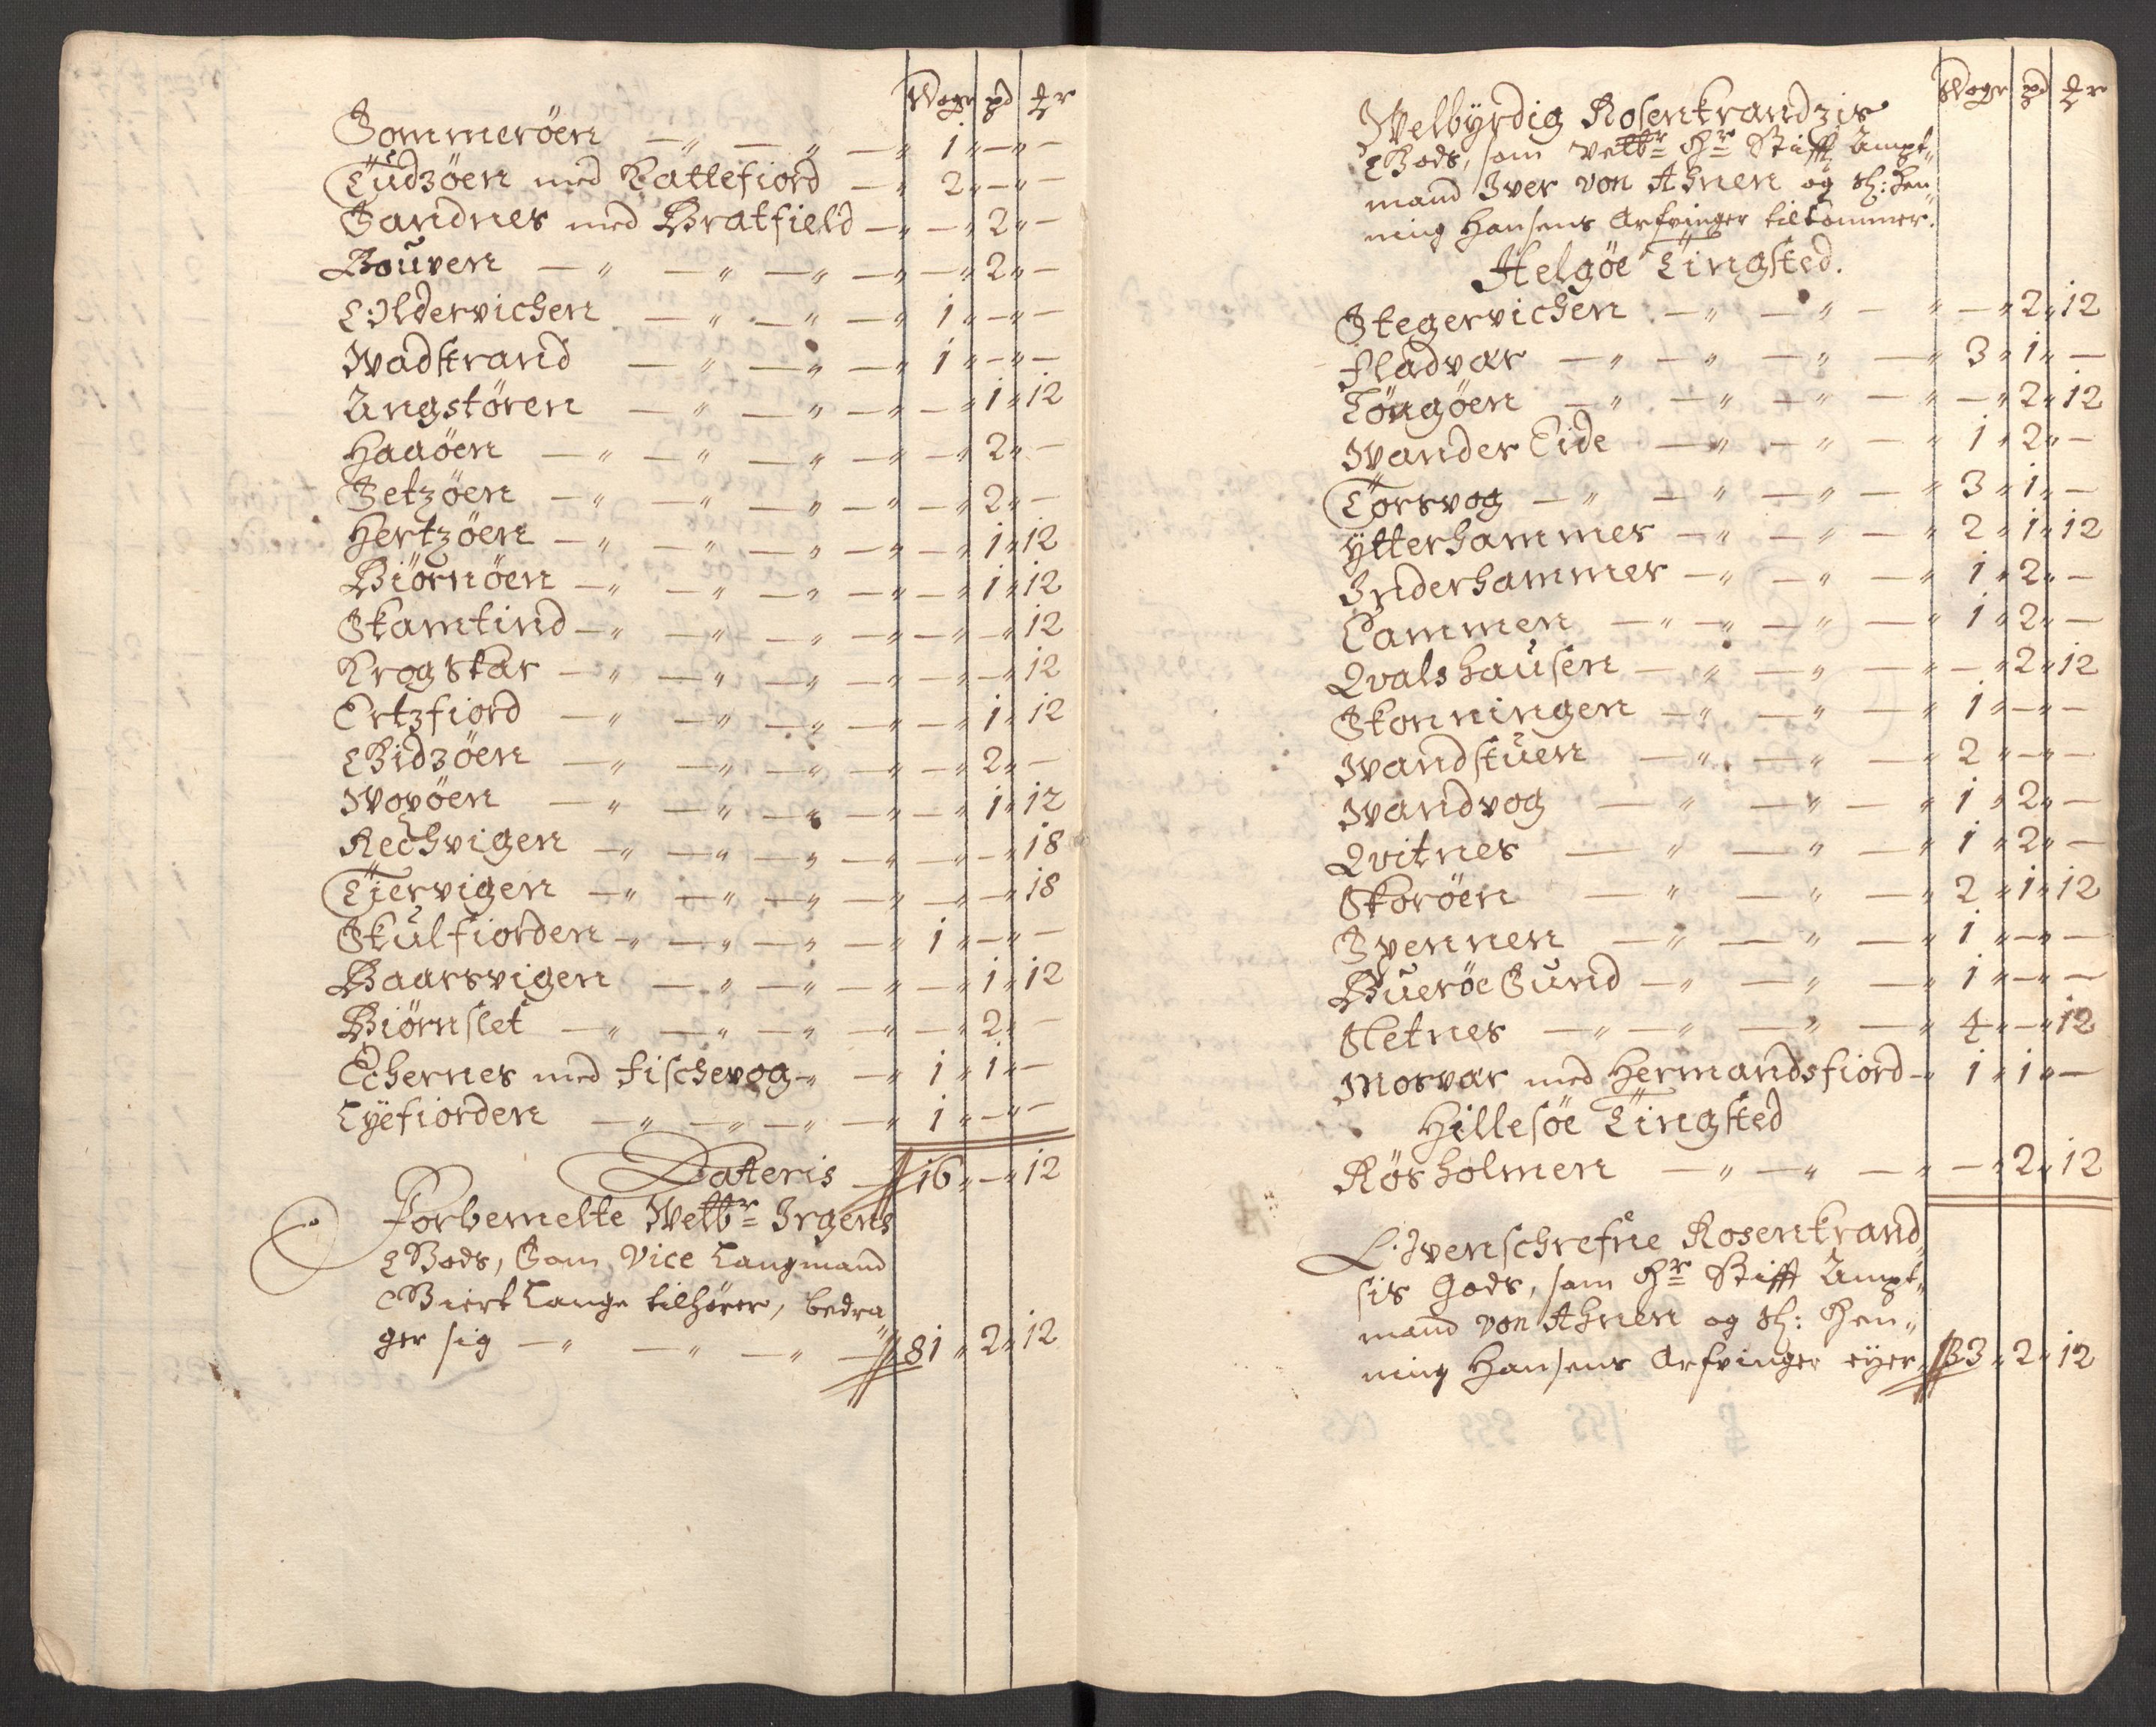 Woger pd ℔r
Sommeröen — „ — „ — „ 1 „ — „ —
Tüdzöen med Kattefiord — „ 2 „ — „ —
Sandnes med Bratfield — „ — „ 2 „ —
Bouven — „ — „ — „ — „ — „ 2 „ —
Oldervichen — „ — „ — „ 1 „ — „ —
Wadstrand — „ — „ — „ 1 „ — „ —
Ungstören — „ — „ — „ — „ 1 „ 12
Haaöen — „ — „ — „ — „ — „ 2 „ —
Setzöen — „ — „ — „ — „ — „ 2 „ —
Hertzöen — „ — „ — „ — „ — „ 1 „ 12
Biörnöen — „ — „ — „ — „ — „ 1 „ 12
Skamtind — „ — „ — „ — „ — „ — „ 12
Krogskar — „ — „ — „ — „ — „ — „ 12
Ertzfiord — „ — „ — „ — „ — „ 1 „ 12
Gidzöen — „ — „ — „ — „ — „ 2 „ —
Wovöen — „ — „ — „ — „ — „ 1 „ 12
Rechvigen — „ — „ — „ — „ — „ — „ 18
Tiervigen — „ — „ — „ — „ — „ — „ 18
Skulfiorden — „ — „ — „ — „ 1 „ — „ —
Baarsvigen — „ — „ — „ — „ 1 „ 12
Biörnslet — „ — „ — „ — „ — „ 2 „ —
Echernes med Fischevog — „ — „ 1 „ 1 „ —
Lyefiorden — „ — „ — „ — „ 1 „ — „ —
Lateris — 16 „ — „ 12
Forbemelte Welbr Irgens
Gods, Som Vice Laugmand
Giert Lange tilhörer, bedra„
ger sig — „ — „ — „ — 81 „ 2 „ 12
Woger pd ℔r
Welbyrdig Rosenkrandzis
Gods, som Velbr Hr Stifft Ampt„
mand Iver von Ahnen og Sl: Hen„
ning Hansens Arfvinger tilkommer.
Helgöe Tingsted.
Stegervichen — „ — „ — „ — „ 2 „ 12
Fladvær — „ — „ — „ — „ 3 „ 1 „ —
Töngöen — „ — „ — „ — „ — „ 2 „ 12
Wander Eide — „ — „ — „ 1 „ 2 „ —
Torsvog — „ — „ — „ — „ 3 „ 1 „ —
ÿtterhammer — „ — „ — „ 2 „ 1 „ 12
Inderhammer — „ — „ — „ 1 „ 2 „ —
Cammen — „ — „ — „ — „ 1 „ 2 „ —
Qvalshausen — „ — „ — „ — „ 2 „ 12
Skonningen — „ — „ — „ 1 „ — „ —
Wandstuen — „ — „ — „ 2 „ — „ —
Wandvog — „ — „ — „ 1 „ 2 „ —
Qvitnes — „ — „ — „ 1 „ 2 „ —
Skoröen — „ — „ — „ 2 „ 1 „ 12
Svennen — „ — „ — „ 1 „ — „ —
Bueröe Sund — „ — „ — „ 1 „ — „ —
Sletnes — „ — „ — „ — „ 4 „ — „ 12
Mosvær med Hermandsfiord — „ 1 „ 1 „ —
Hillesöe Tingsted
Rösholmen — „ — „ — „ — „ 2 „ 12
Ovenschrefne Rosenkrand„
sis Gods, som Hr Stifft Ampt„
mand von Ahnen og Sl: Hen„
ning Hansens Arfvinger eÿer „ 33 „ 2 „ 12